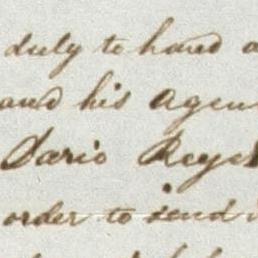 duly to hand a
and his agen
Dario Reyes
order to send